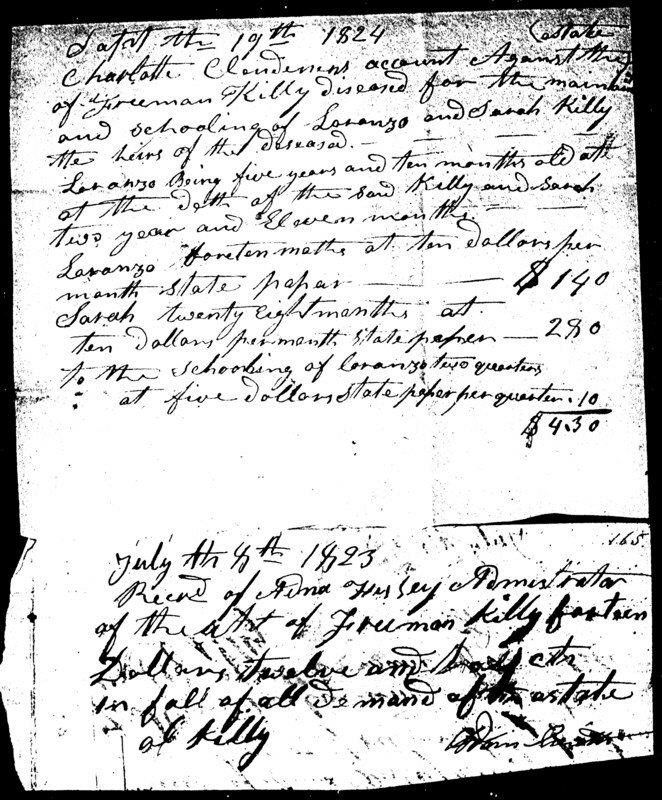 Sapt the 19th 1824
Charlotte Clendenens account Against the estate
of Freeman Killy diseased for the maintain
and schooling of Loranzo and Sarah Killy
the heirs of the deseased. —
Loranzo Being five years and ten months old at
at the deth of the said Killy and Sarah
two year and Eleven months —
Loranzo foreten maths at ten dollars per
month state papar — $140
Sarah twenty eight months at
ten dollars per month state paper — 280
to the schooling of loranzo two quarters
at five dollars state paper per quarter. 10
$4.30
165
July th 8th 1823
Recrd of Adna Hussey Admistrator
of the of Freeman Killy forteen
Dollars twelve and half cts
in full of all demand of the astate
of Killy